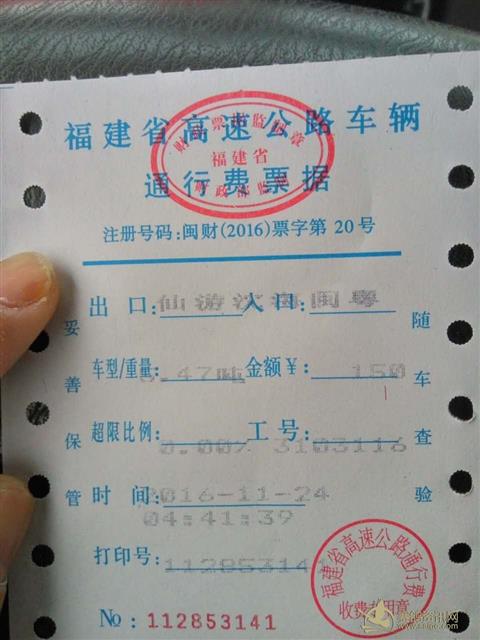 福建省高速公路车辆
通行费票据
福建省
注册号码:闽财(2016)票字第 20号
出 口: 仙游沙 入 口: 闽粤
车型/重量: 5.47吨 金额¥: 150
超限比例: 0.00% 工号: 3103116
时 间: 2016-11-24
04:41:39
打印号: 1128531
№: 112853141
妥善保管
随车查验
福建省高速公路通行费
收费专用章